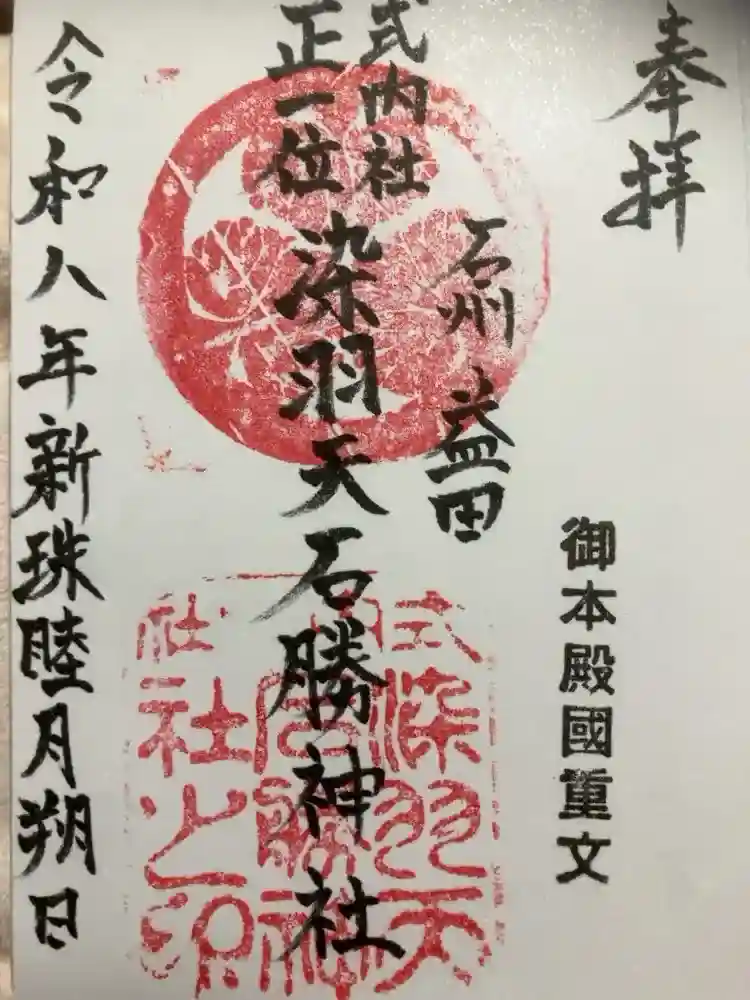 奉拝
御本殿國重文
石州 益田
式内社
正一位
染羽天石勝神社
令和八年新珠睦月朔日
式内社
染羽天
石勝神
社之印